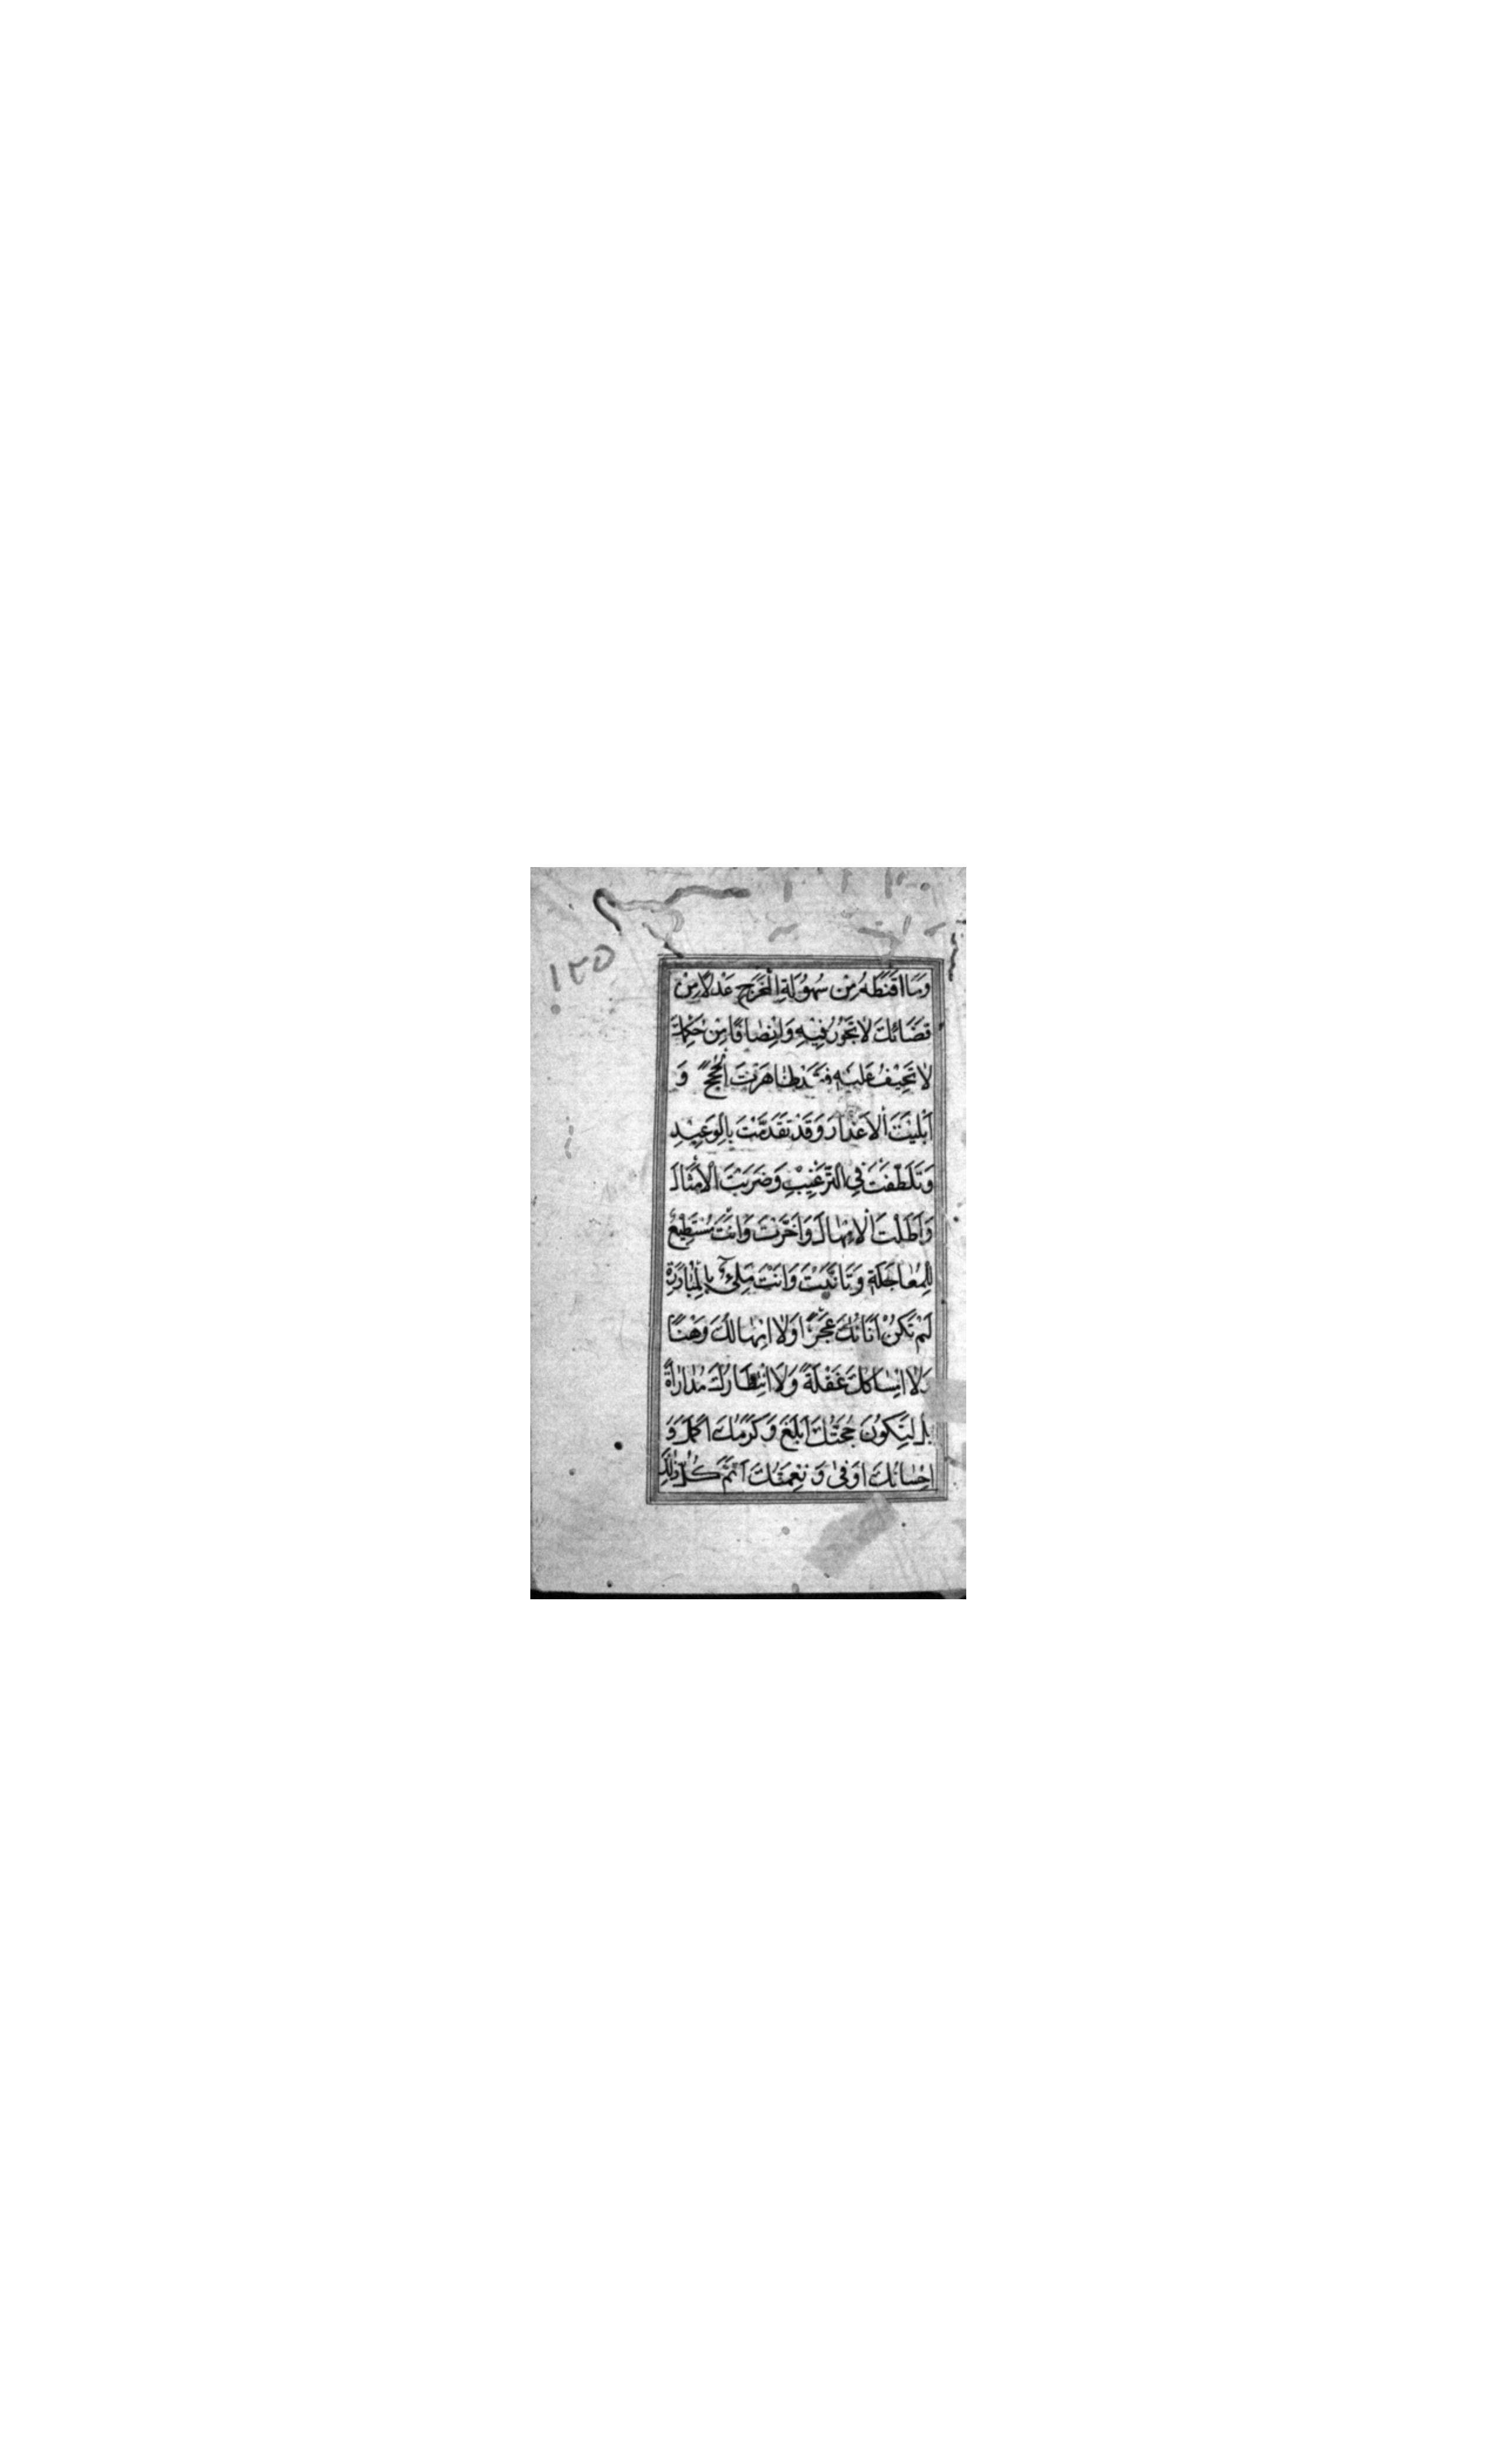 ١٢٥
وَمَا اَقْنَطَهُ مِنْ سُهُولَةِ الْمَخْرَجِ عَدْلًا مِنْ
قَضَائِكَ لَا تَجُورُ فِيهِ وَاِنْصَافًا مِنْ حُكْمِكَ
لَا تَحِيفُ عَلَيْهِ فَقَدْ ظَاهَرْتَ الْحُجَجَ وَ
اَبْلَيْتَ الْاَعْذَارَ وَقَدْ تَقَدَّمْتَ بِالْوَعِيدِ
وَتَلَطَّفْتَ فِي التَّرْغِيبِ وَضَرَبْتَ الْاَمْثَالَ
وَاَطَلْتَ الْاِمْهَالَ وَاَخَّرْتَ وَاَنْتَ مُسْتَطِيعٌ
لِلْمُعَاجَلَةِ وَتَاَنَّيْتَ وَاَنْتَ مَلِيءٌ بِالْمُبَادَرَةِ
لَمْ تَكُنْ اَنَاتُكَ عَجْزًا وَلَا اِمْهَالُكَ وَهْنًا
وَلَا اِمْسَاكُكَ غَفْلَةً وَلَا انْتِظَارُكَ مُدَارَاةً
بَلْ لِتَكُونَ حُجَّتُكَ اَبْلَغَ وَكَرَمُكَ اَكْمَلَ وَ
اِحْسَانُكَ اَوْفَى وَنِعْمَتُكَ اَتَمَّ كُلُّ ذَلِكَ